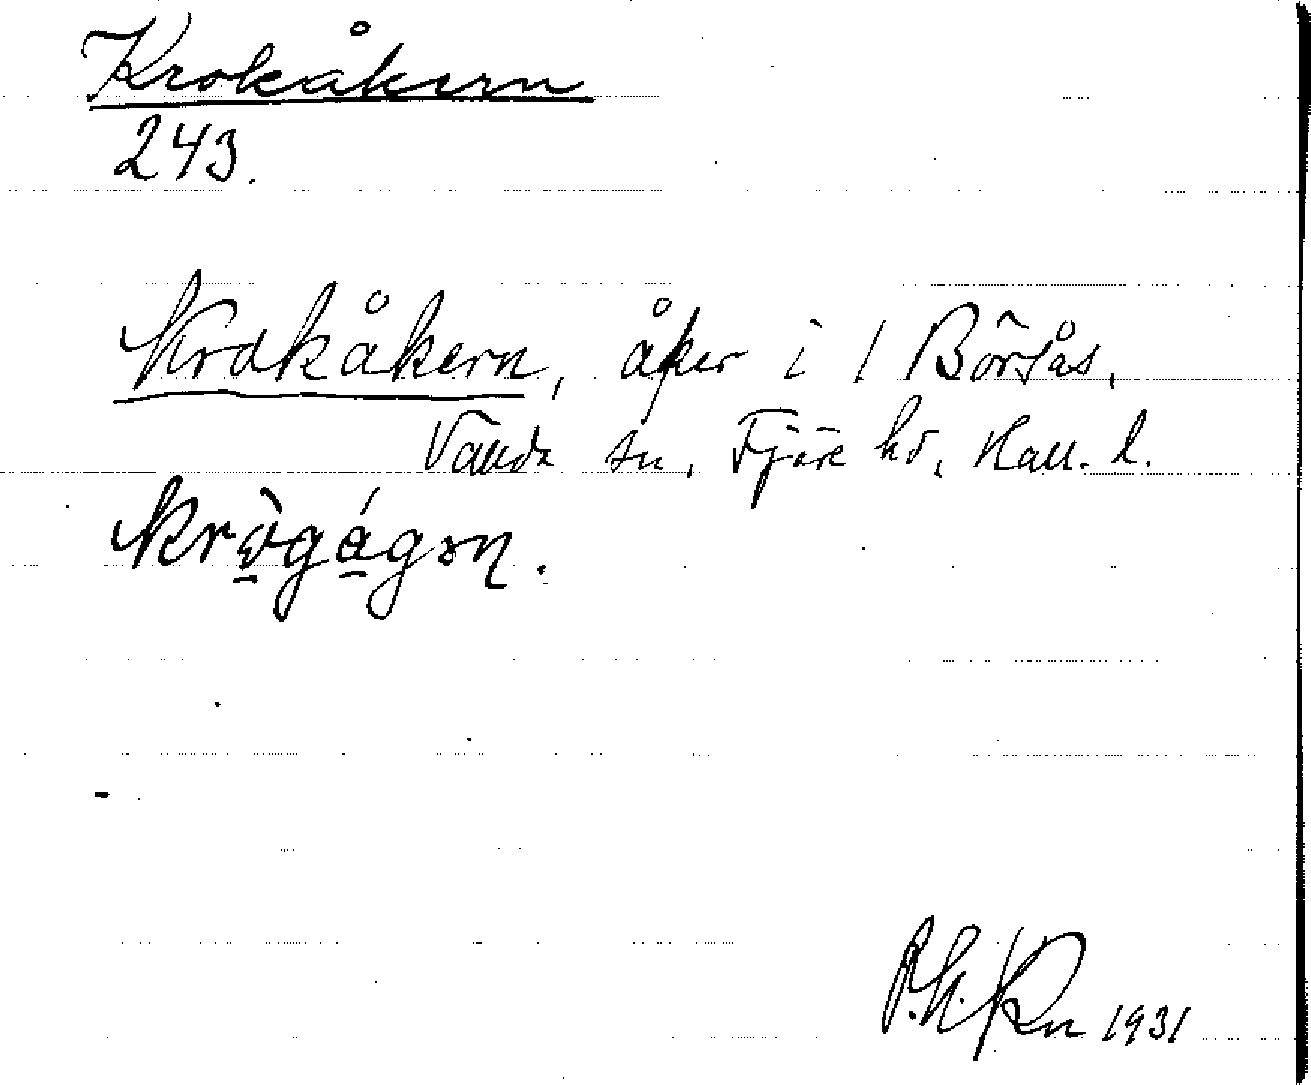 Krokåkern
243.
Krokåkern, åker i 1 Börsås,
Vallda sn, Fjäre hd, Hall. l.
krò̱gá̱gən.
1931